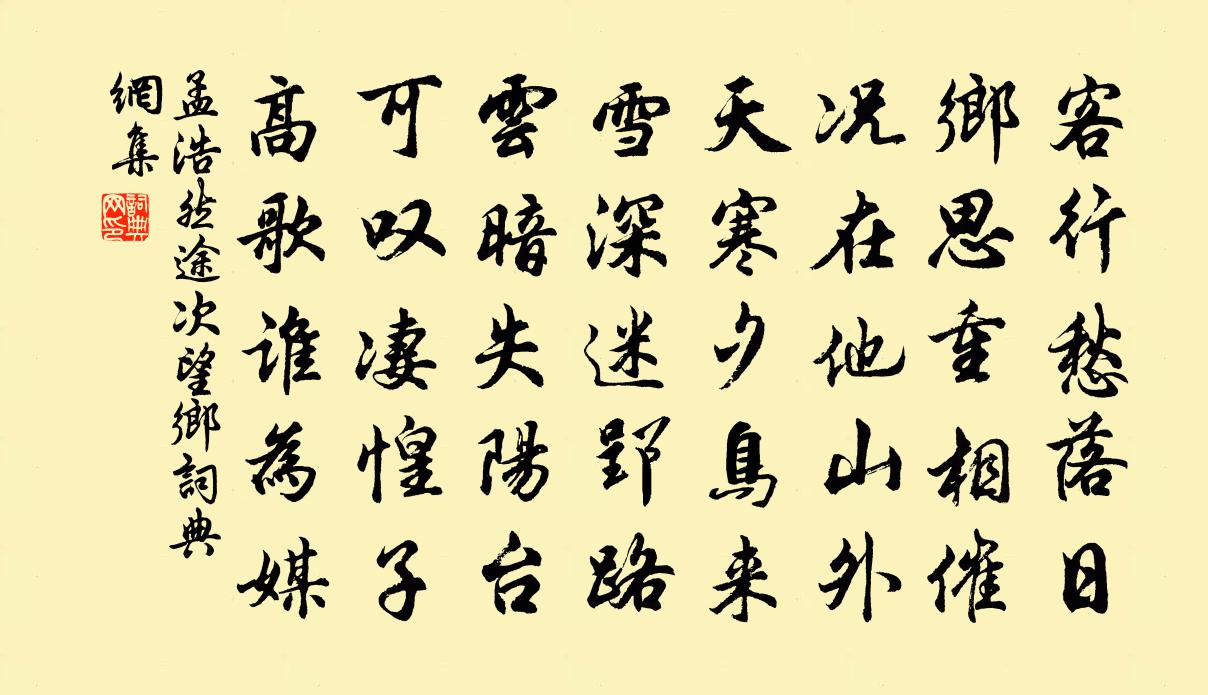 客行愁落日
鄉思重相催
况在他山外
天寒夕鳥来
雪深迷郢路
雲暗失陽台
可叹凄惶子
高歌誰為媒
孟浩然途次望鄉詞典
網集
詞典
网印